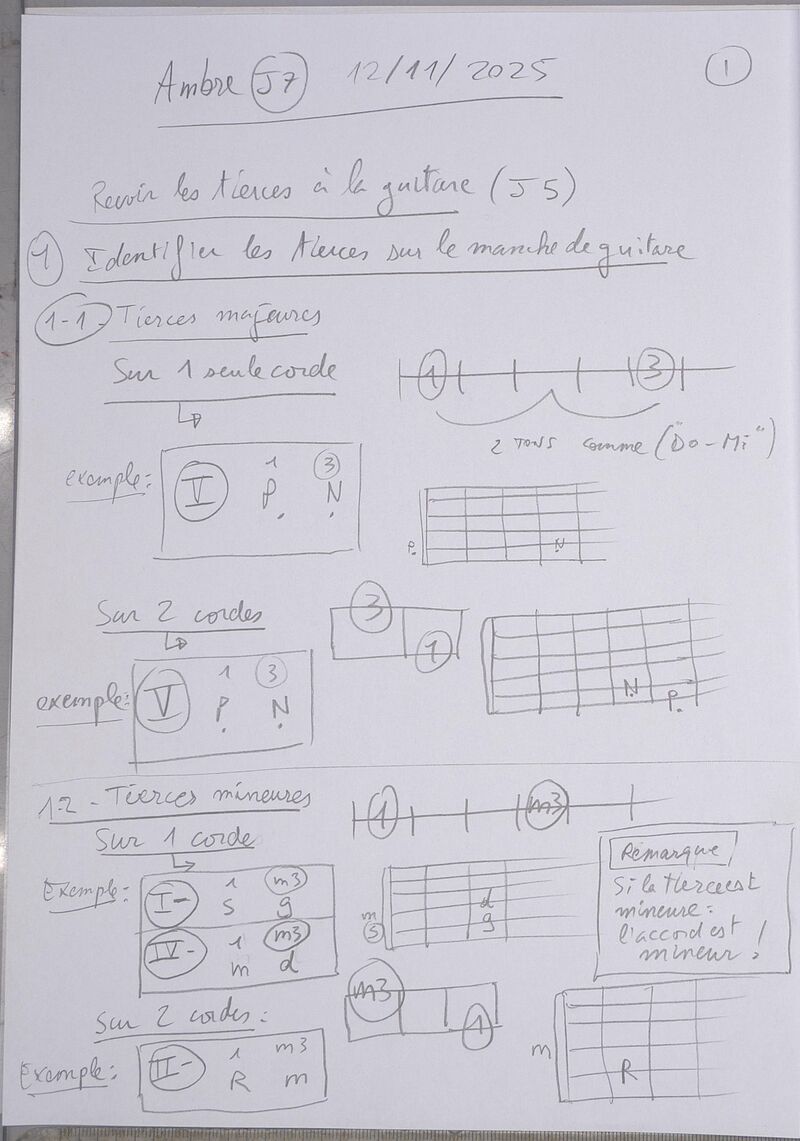 Ambre J7 12/11/2025
1
Revoir les tierces à la guitare (J5)
1 Identifier les tierces sur le manche de guitare
1-1- Tierces majeures
Sur 1 seule corde
1 3
2 tons comme ("Do-Mi")
exemple:
1 3
V P N
P N
Sur 2 cordes
3
1
exemple:
1 3
V P N
N P
1-2- Tierces mineures
1 m3
Sur 1 corde
Exemple:
1 m3
I- S g
IV- 1 m3
m d
m d
S g
Remarque
Si la tierce est
mineure:
l'accord est
mineur!
Sur 2 cordes:
m3
1
Exemple:
1 m3
II- R m
m
R